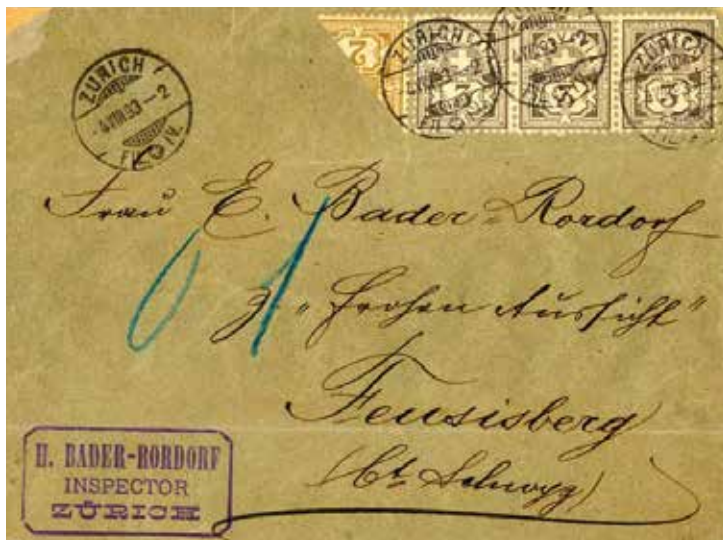 ZÜRICH
4 VIII 93-2
FIL IV.
2
3
3
3
ZÜRICH
FIL
Frau E. Bader-Rordorf
z "Frohen Aussicht"
Feusisberg
(Ct. Schwyz)
H. BADER-RORDORF
INSPECTOR
ZÜRICH